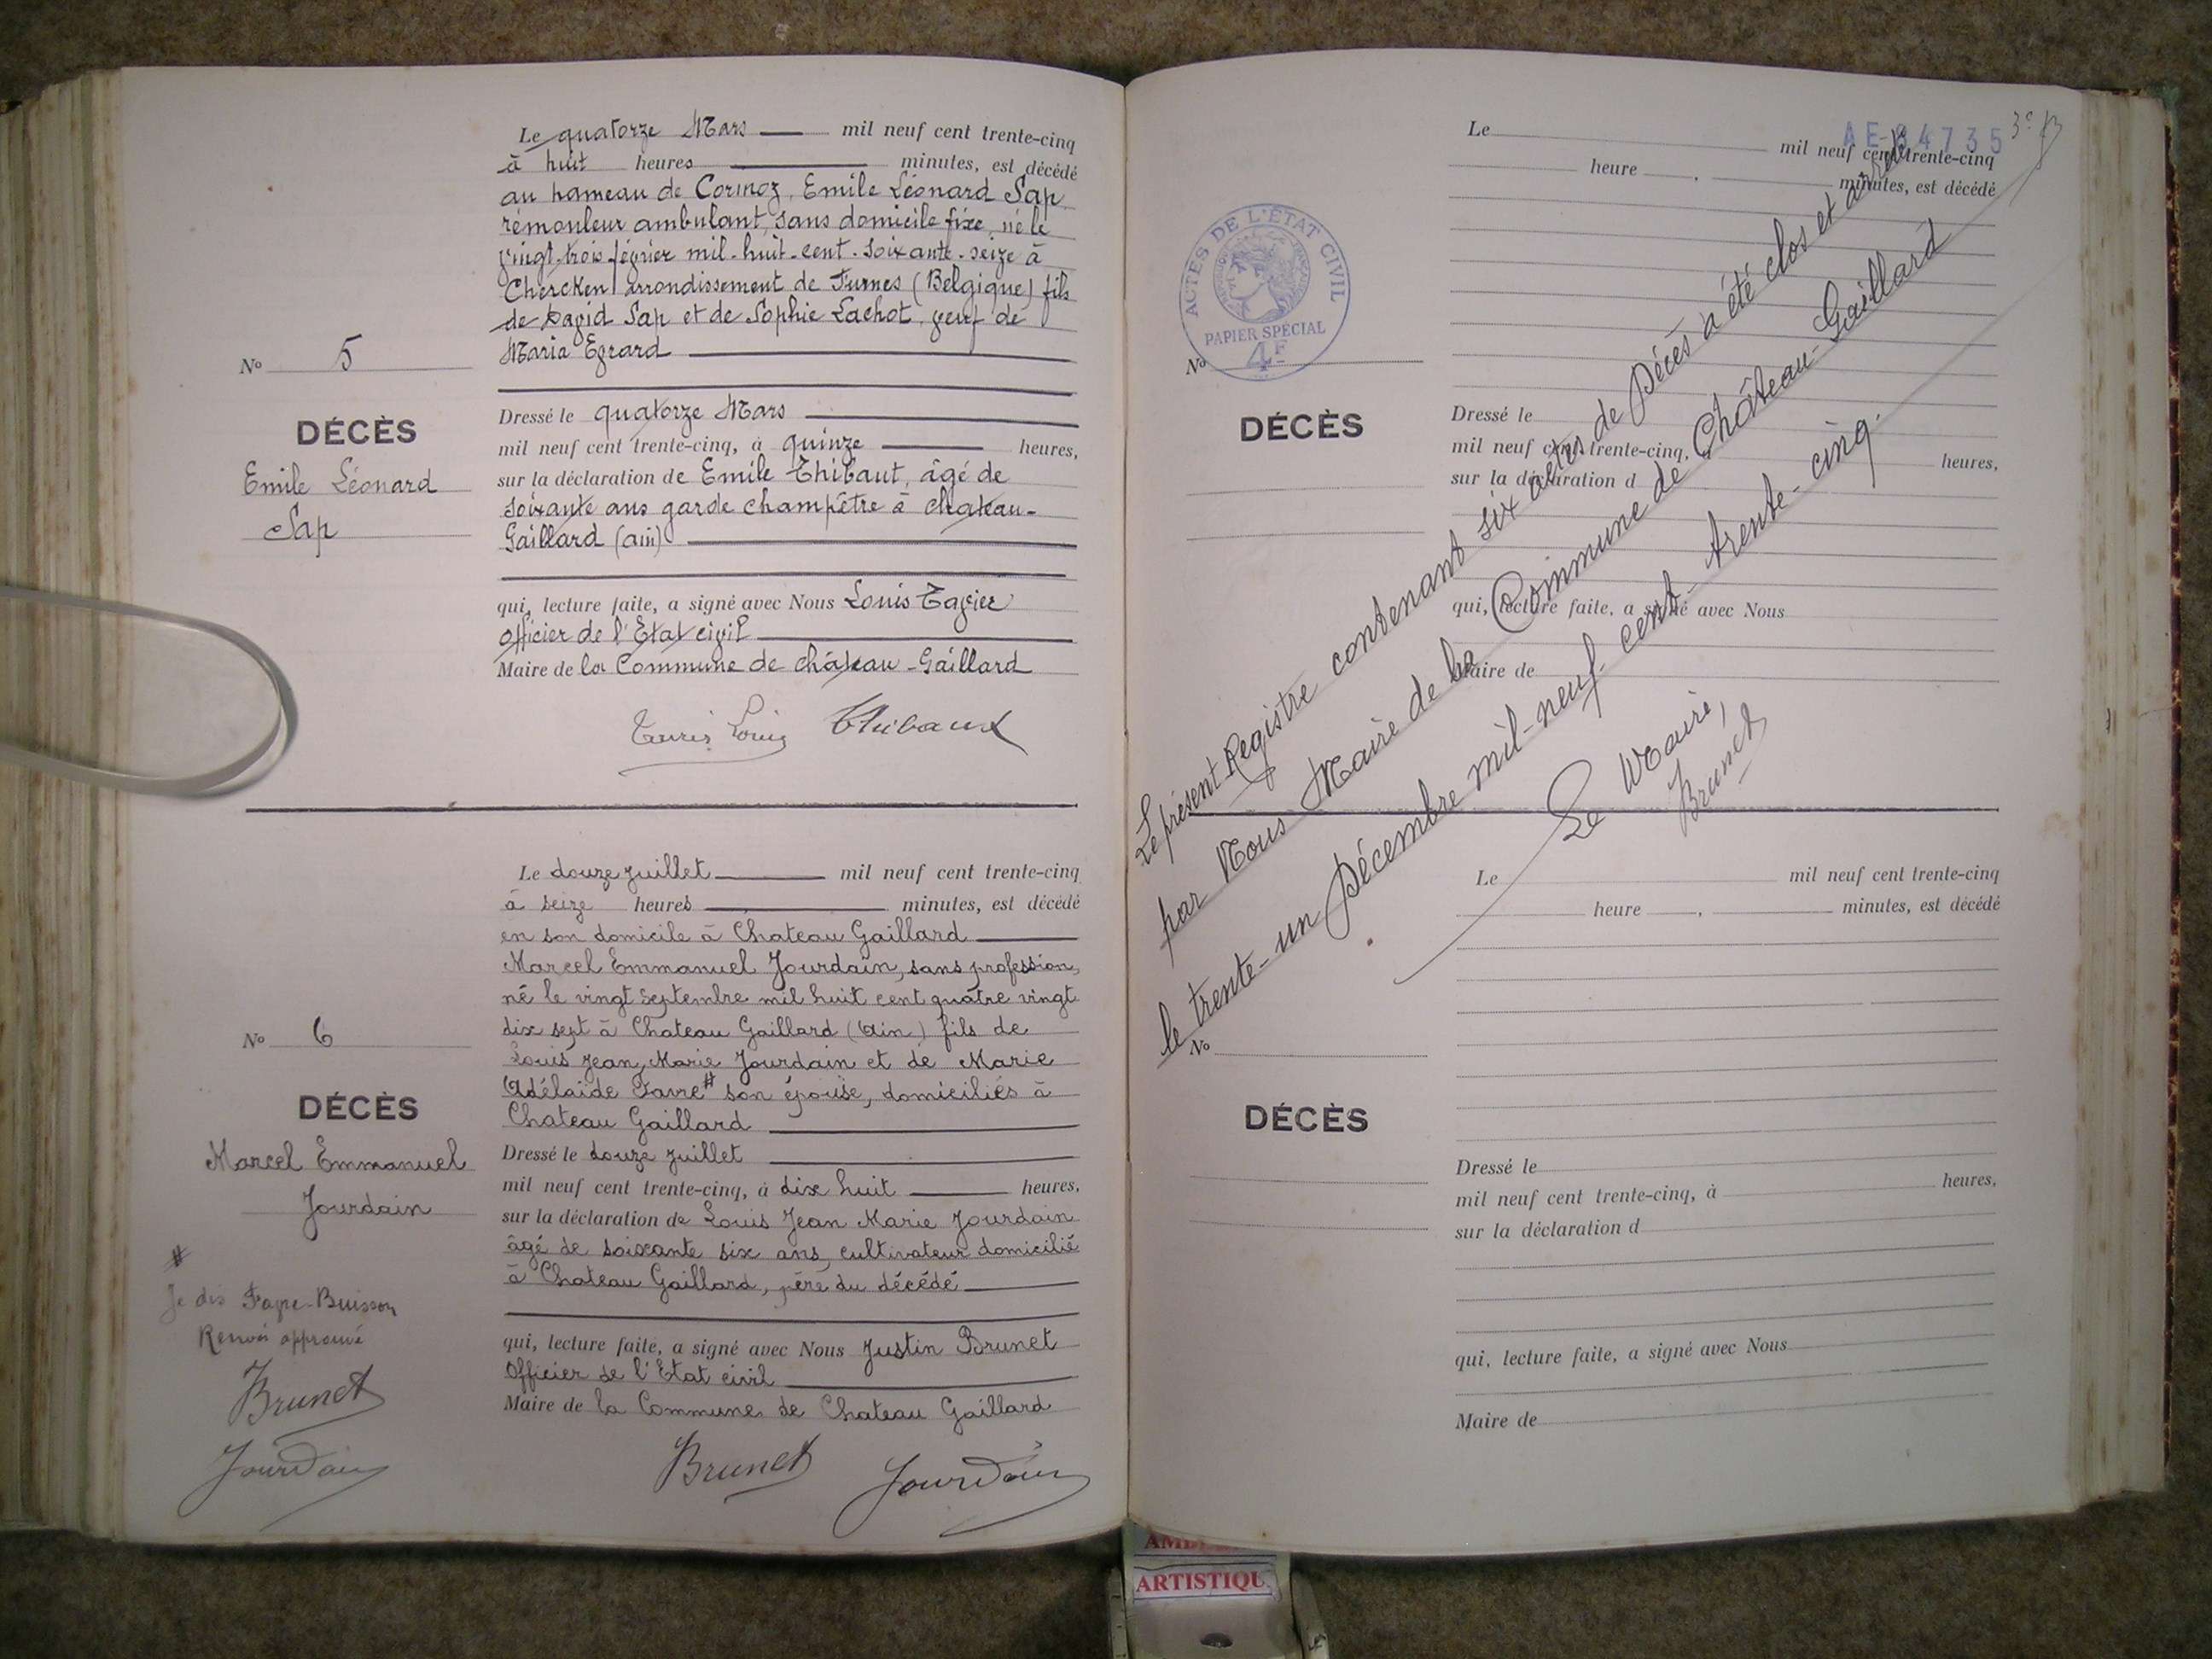 Le quatorze Mars mil neuf cent trente-cinq
à huit heures minutes, est décédé
au hameau de Cormoz, Emile Léonard Sap
rémouleur ambulant, sans domicile fixe, né le
vingt-trois février mil-huit-cent-soixante-seize à
Chercken arrondissement de Furnes (Belgique) fils
de David Sap et de Sophie Lachot, veuf de
Maria Evrard
No 5
DÉCÈS
Emile Léonard
Sap
Dressé le quatorze Mars
mil neuf cent trente-cinq, à quinze heures,
sur la déclaration de Emile Thibaut, âgé de
soixante ans garde champêtre à château-
Gaillard (ain)
qui, lecture faite, a signé avec Nous Louis Tavier
officier de l'Etat civil
Maire de la Commune de château-Gaillard
Louis Thibaut
Le douze juillet mil neuf cent trente-cinq
à seize heures minutes, est décédé
en son domicile à Chateau Gaillard
Marcel Emmanuel Jourdain, sans profession,
né le vingt septembre mil huit cent quatre vingt
dix sept à Chateau Gaillard (Ain) fils de
Louis Jean, Marie Jourdain et de Marie
Adélaïde Favre # son épouse, domiciliés à
Chateau Gaillard
No 6
DÉCÈS
Marcel Emmanuel
Jourdain
#
Je dis Favre-Buisson
Renvoi approuvé
Brunet
Jourdain
Dressé le douze juillet
mil neuf cent trente-cinq, à dix huit heures,
sur la déclaration de Louis Jean Marie Jourdain
âgé de soixante six ans, cultivateur domicilié
à Chateau Gaillard, père du décédé
qui, lecture faite, a signé avec Nous Justin Brunet
Officier de l'Etat civil
Maire de la Commune de Chateau Gaillard
Brunet Jourdain
AE 84735
Le mil neuf cent trente-cinq
heure , minutes, est décédé
ACTES DE L'ÉTAT CIVIL
RÉPUBLIQUE FRANÇAISE
PAPIER SPÉCIAL
4F
No
DÉCÈS
Dressé le
mil neuf cent trente-cinq, à heures,
sur la déclaration d
qui, lecture faite, a signé avec Nous
Maire de
Le présent Registre contenant six actes de Décès a été clos et arrêté
par Nous Maire de la Commune de Château-Gaillard
le trente-un Décembre mil-neuf-cent-trente-cinq.
Le Maire,
Brunet
Le mil neuf cent trente-cinq
heure , minutes, est décédé
No
DÉCÈS
Dressé le
mil neuf cent trente-cinq, à heures,
sur la déclaration d
qui, lecture faite, a signé avec Nous
Maire de
ARTISTIQU